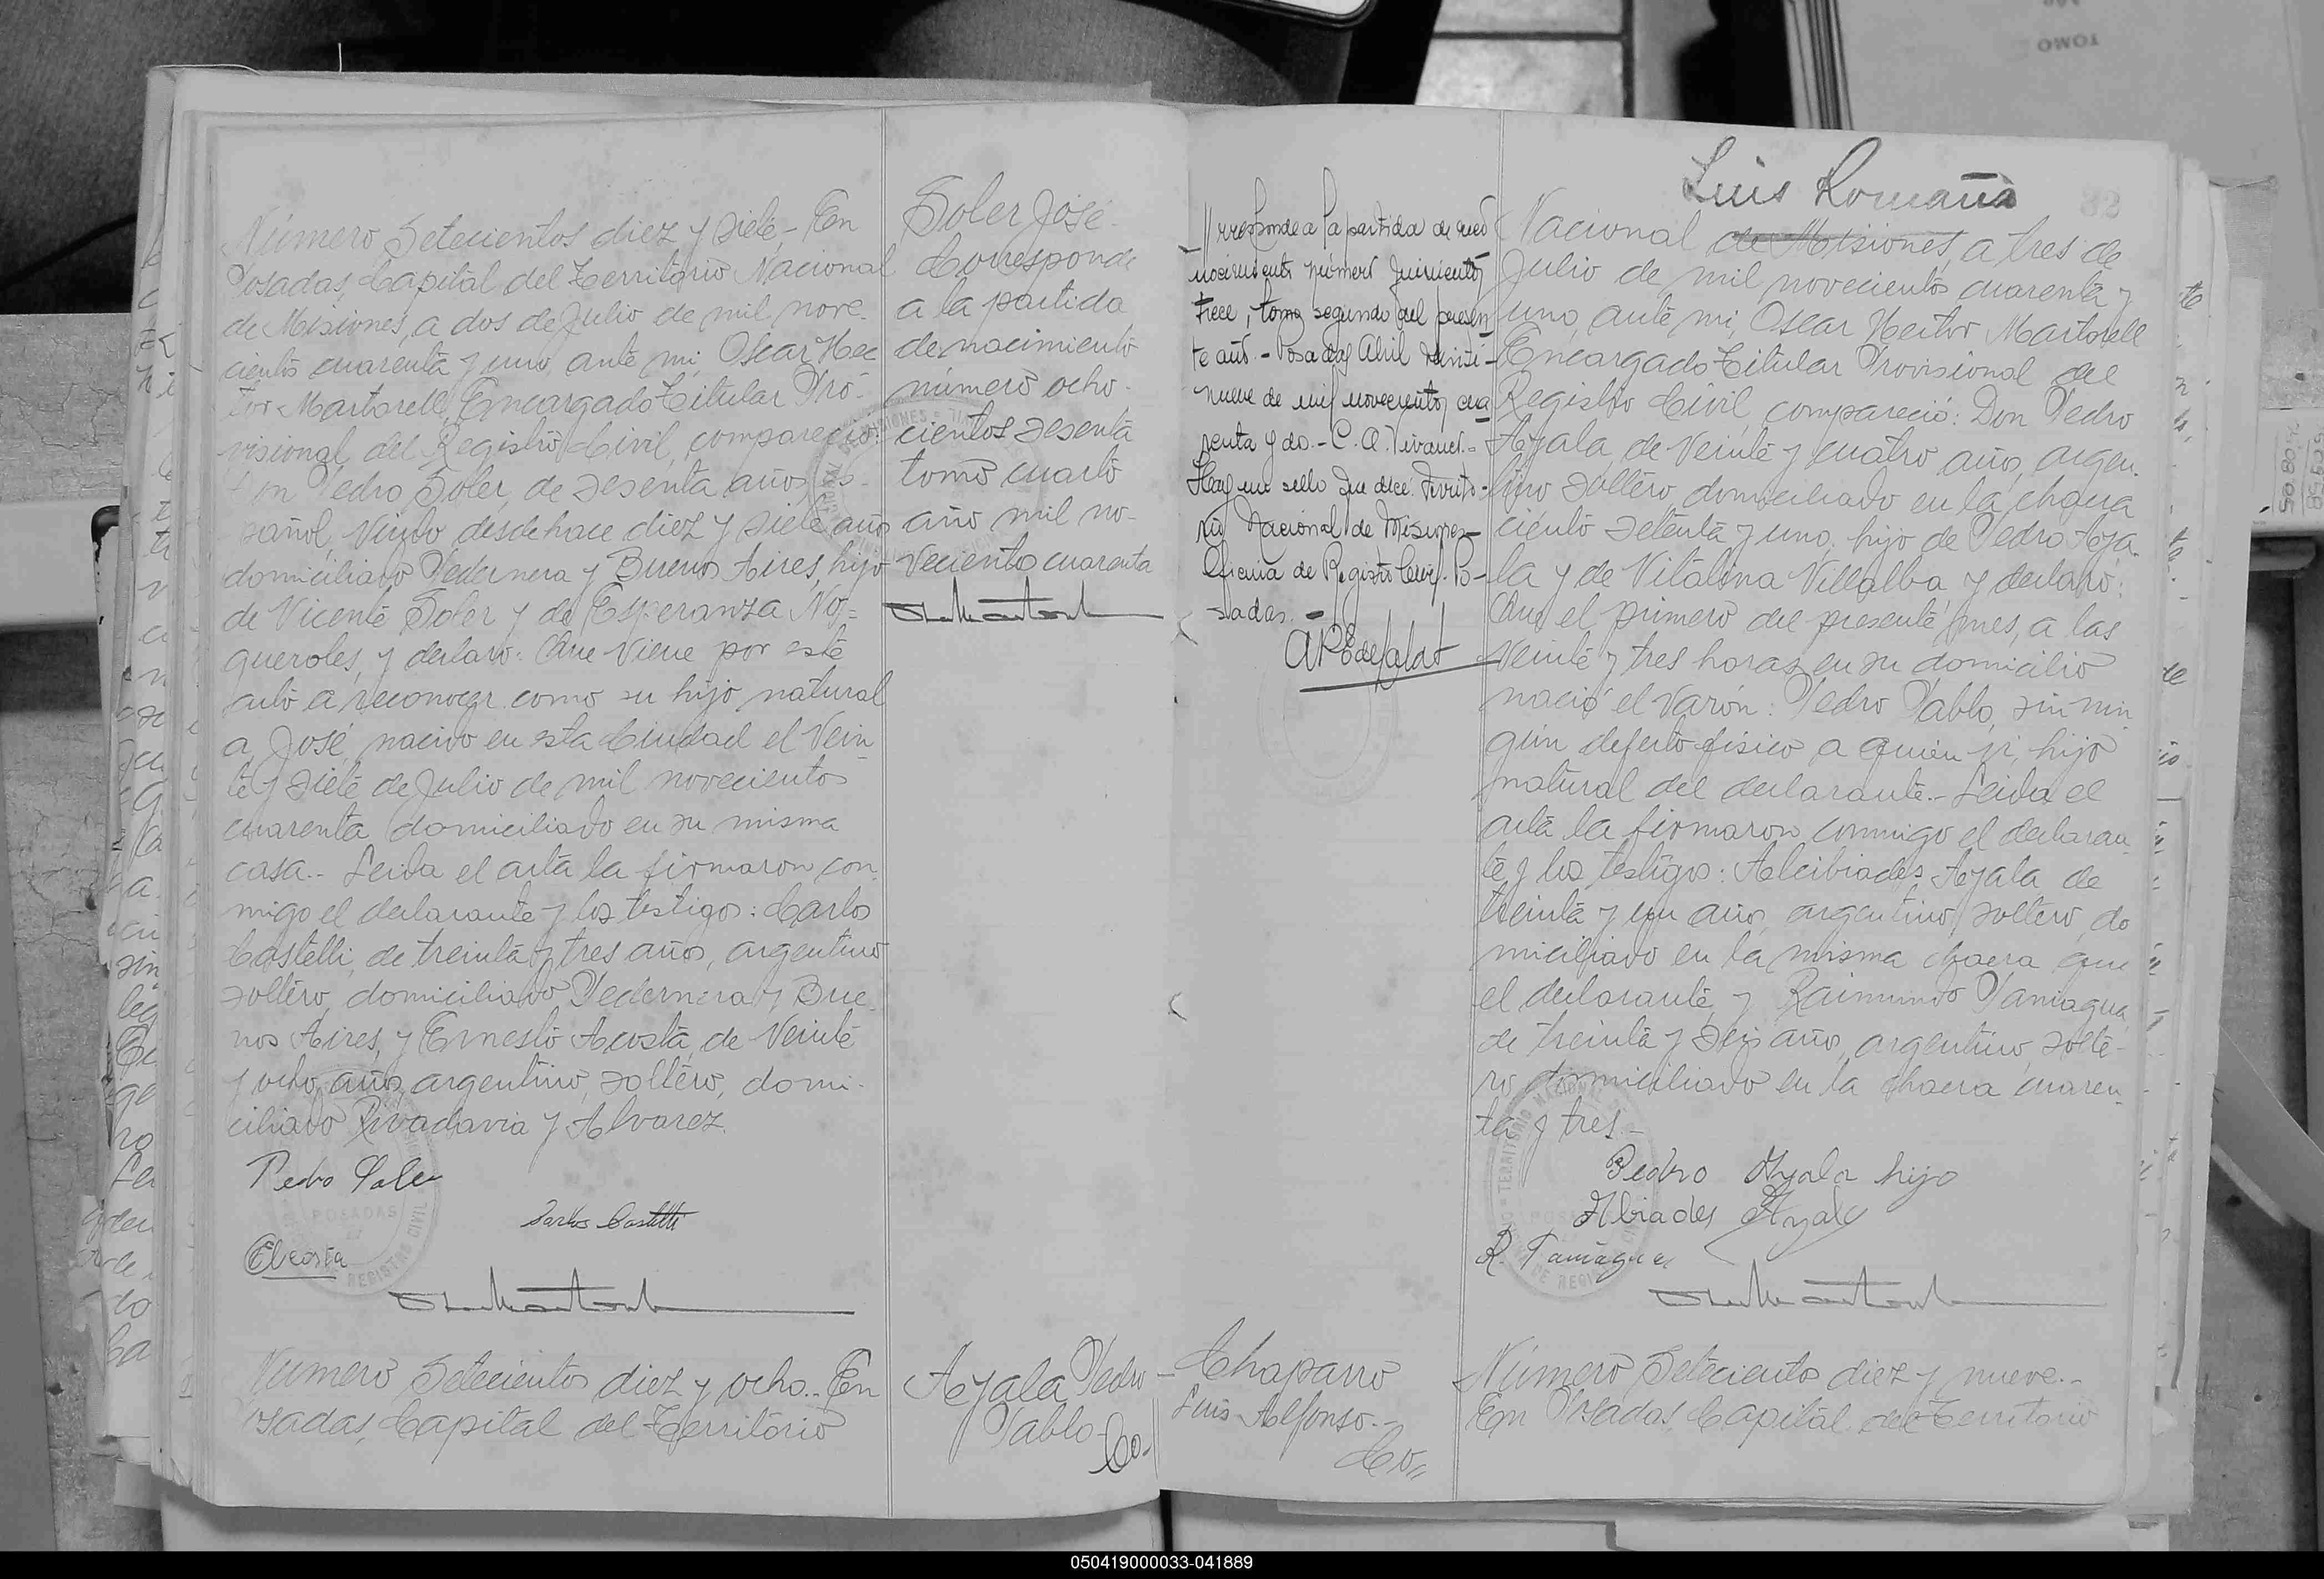 Número Setecientos diez y siete - En
Posadas, Capital del Territorio Nacional
de Misiones, a dos de Julio de mil nove-
cientos cuarenta y uno, ante mi, Oscar Hec-
tor Martorell, Encargado Titular Pro-
visional del Registro Civil, compareció:
Don Pedro Soler, de sesenta años, es-
pañol, Viudo desde hace diez y siete años
domiciliado Pedernera y Buenos Aires, hijo
de Vicente Soler y de Esperanza No-
queroles, y declaro: Que Viene por este
acto a reconocer como su hijo natural
a José, nacido en esta Ciudad el Vein
te y siete de Julio de mil novecientos
cuarenta domiciliado en su misma
casa.- Leida el acta la firmaron con
migo el declarante y los testigos: Carlos
Castelli, de treinta y tres años, argentino
soltero, domiciliado Pedernera y Bue
nos Aires, y Ernesto Acosta, de Veinte
y ocho años, argentino, soltero, domi-
ciliado Rivadavia y Alvarez.
Pedro Soler
Carlos Castelli
EAcosta
POSADAS
REGISTRO CIVIL
Número Setecientos diez y ocho.- En
Posadas, Capital del Territorio
Soler José
Corresponde
a la partida
de nacimiento
número ocho-
cientos sesenta
tomo cuarto
año mil no-
veciento cuarenta
Ayala Pedro
Pablo-
Co-
rresponde a la partida de
nacimiento número quinientos
trece, tomo segundo del presen
te año.- Posadas Abril veinti-
nueve de mil novecientos cua
renta y do.- C. A.
Hay un sello que dice: Territo-
rio Nacional de Misiones-
Oficina de Registro Civil. Po-
sadas.-
Chaparro
Luis Alfonso.-
Co=
Luis Romaña
82
Nacional de Misiones, a tres de
Julio de mil novecientos cuarenta y
uno, ante mi, Oscar Hector Martorell
Encargado Titular Provisional del
Registro Civil, compareció: Don Pedro
Ayala, de Veinte y cuatro años, argen-
tino soltero, domiciliado en la chacra
ciento setenta y uno, hijo de Pedro Aya-
la y de Vitalina Villalba, y declaró:
Que el primero del presente mes, a las
veinte y tres horas, en su domicilio
nació el Varón: Pedro Pablo, sin nin
gún defecto físico a quien vi, hijo
natural del declarante.- Leida el
acta la firmaron conmigo el declaran
te y los testigos: Alcibiades Ayala, de
treinta y un años, argentino, soltero, do
miciliado en la misma chacra que
el declarante, y Raimundo Paniagua,
de treinta y seis años, argentino, solte-
ro domiciliado en la chacra cuaren-
ta y tres.-
Pedro Ayala hijo
Albiades Ayala
R. Paniagua
TERRITORIO NACIONAL
Número Setecientos diez y nueve.-
En Posadas, Capital del Territorio
TOMO
050419000033-041889